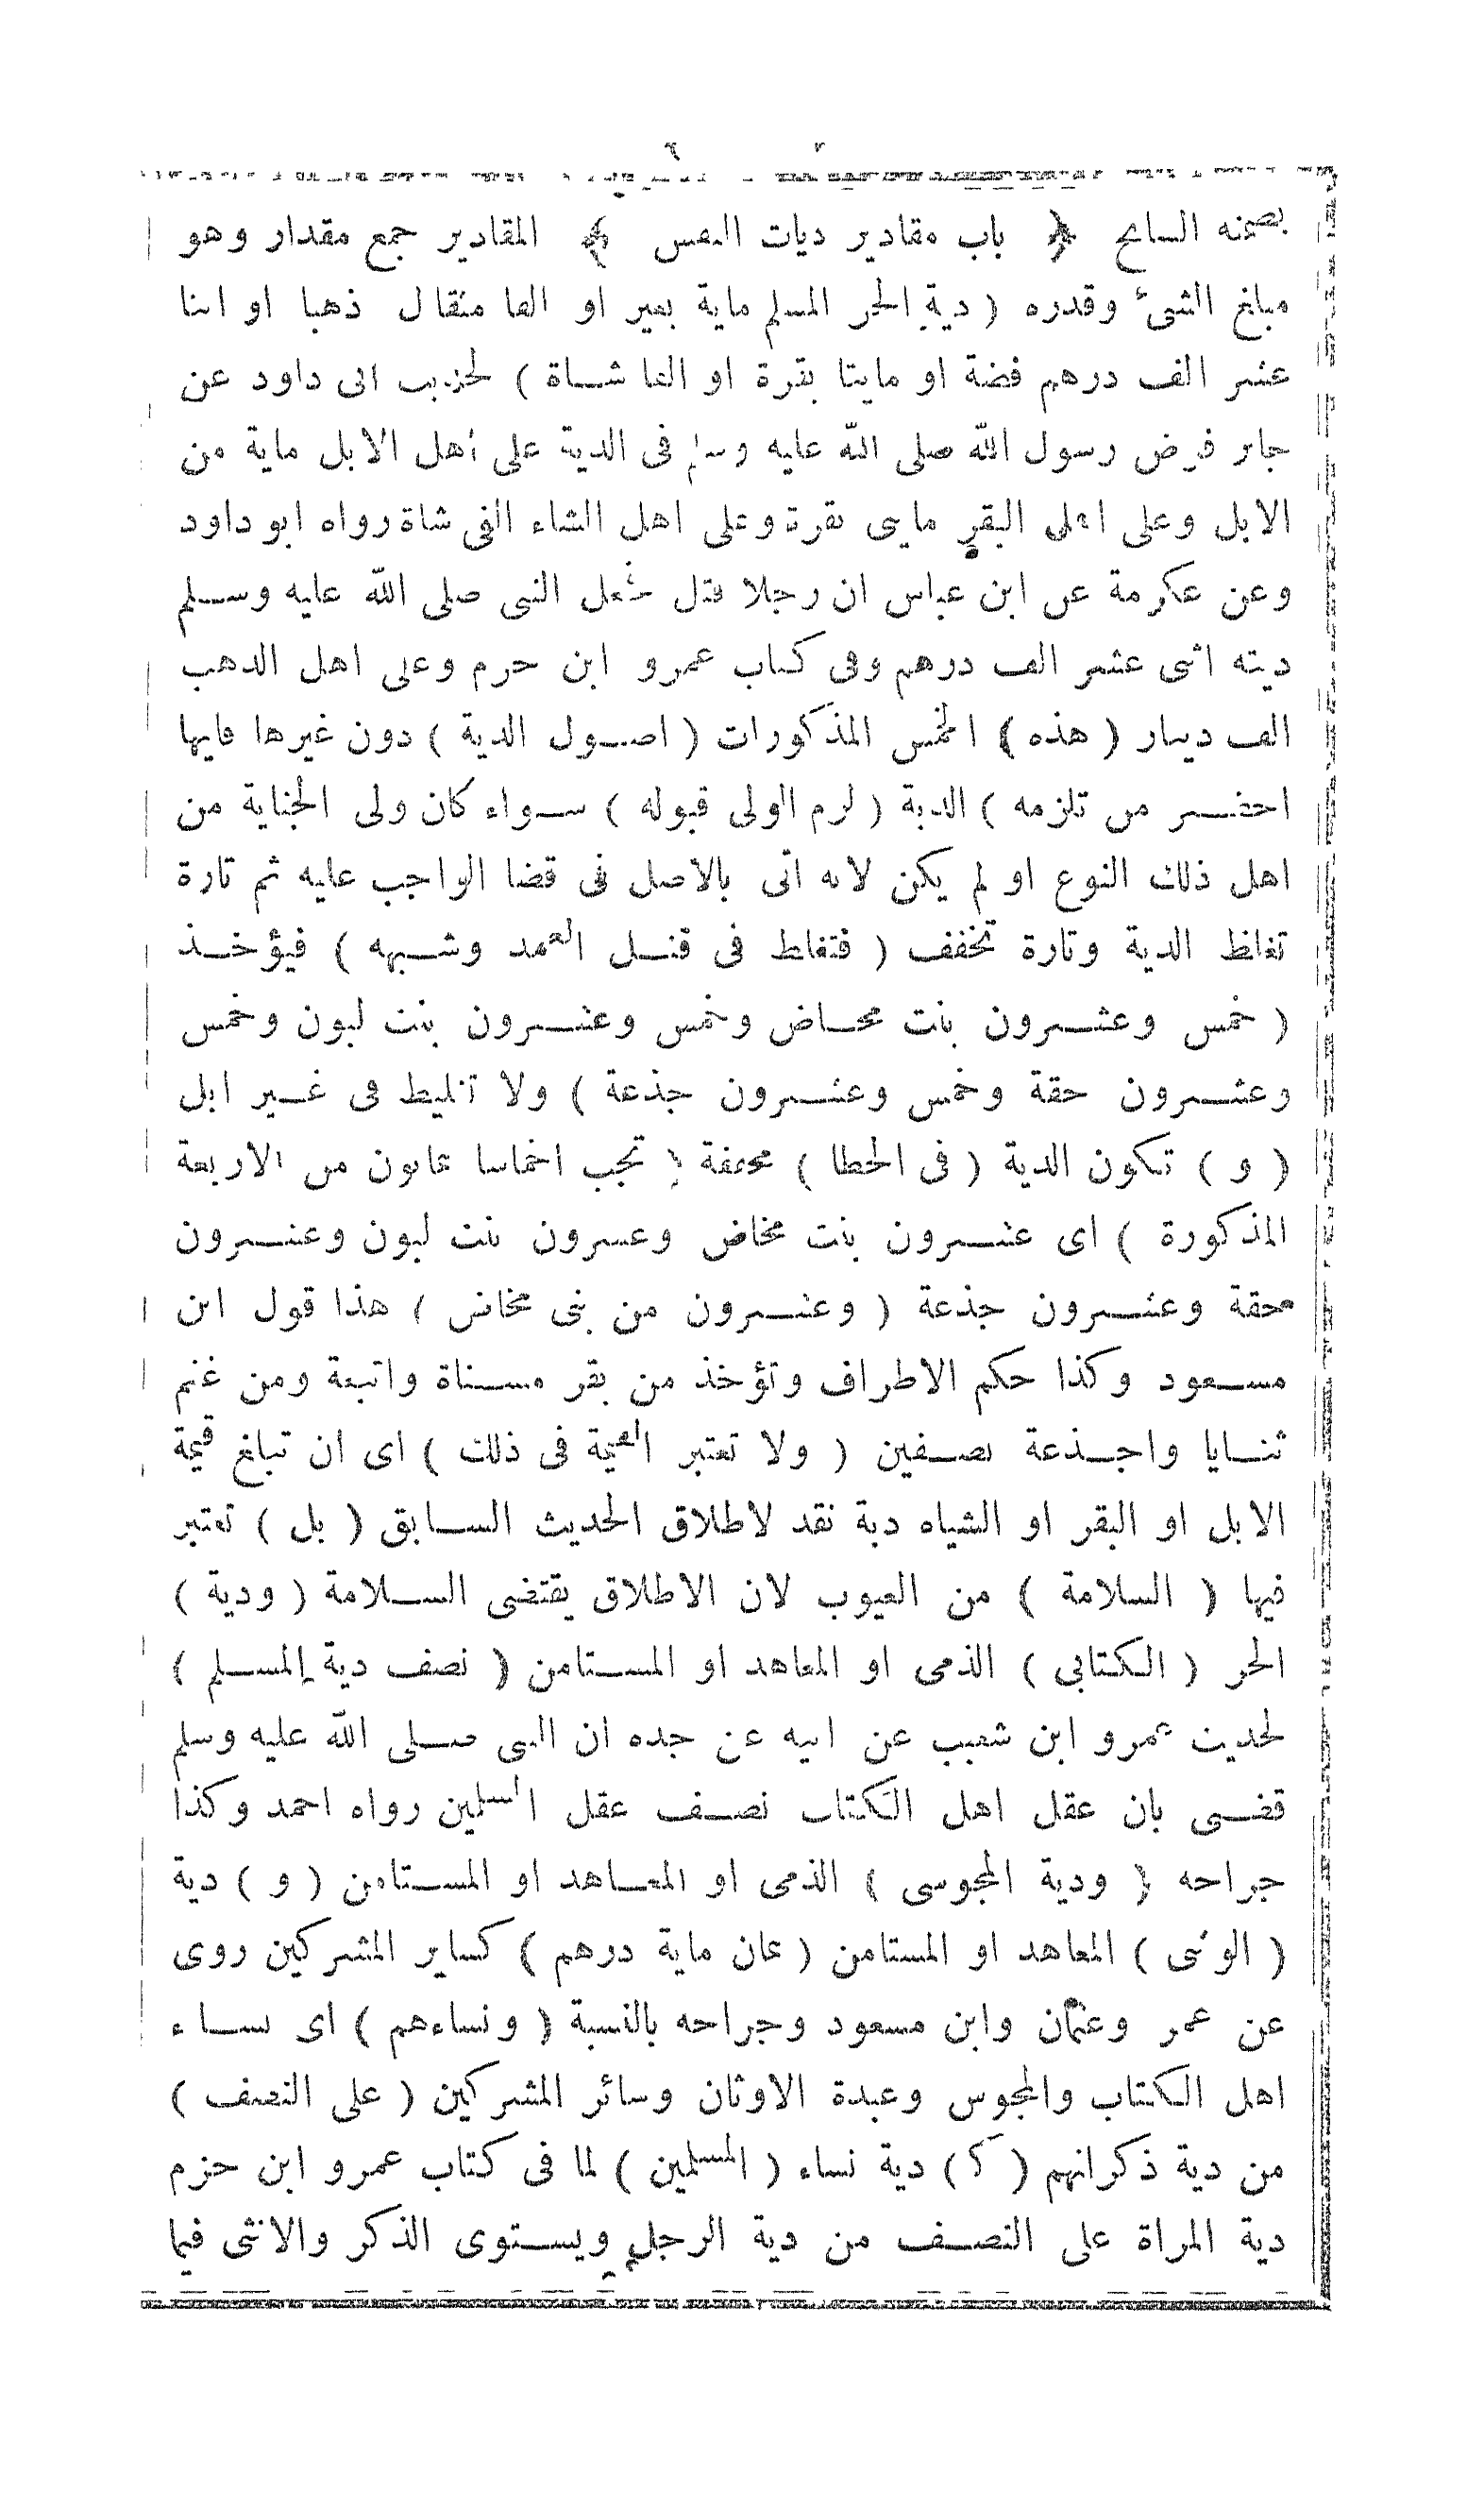 يضمنه السابح ﴿ باب مقادير ديات النفس ﴾ المقادير جمع مقدار وهو
مبلغ الشئ وقدره ( دية الحر المسلم ماية بعير او الفا مثقال ذهبا او اثنا
عشر الف درهم فضة او مايتا بقرة او الفا شاة ) لحديث ابى داود عن
جابر فرض رسول الله صلى الله عليه وسلم فى الدية على اهل الابل ماية من
الابل وعلى اهل البقر مايتى بقرة وعلى اهل الشاء الفى شاة رواه ابو داود
وعن عكرمة عن ابن عباس ان رجلا قتل فجعل النبى صلى الله عليه وسلم
ديته اثنى عشر الف درهم وفى كتاب عمرو ابن حزم وعلى اهل الذهب
الف دينار ( هذه ) الخمس المذكورات ( اصول الدية ) دون غيرها فايها
احضر من تلزمه ) الدية ( لزم الولى قبوله ) سواء كان ولى الجناية من
اهل ذلك النوع او لم يكن لانه اتى بالاصل فى قضا الواجب عليه ثم تارة
تغلظ الدية وتارة تخفف ( فتغلظ فى قتل العمد وشبهه ) فيؤخذ
( خمس وعشرون بنت مخاض وخمس وعشرون بنت لبون وخمس
وعشرون حقة وخمس وعشرون جذعة ) ولا تغليظ فى غير ابل
( و ) تكون الدية ( فى الخطا ) مخففة ( تجب اخماسا ثمانون من الاربعة
المذكورة ) اى عشرون بنت مخاض وعشرون بنت لبون وعشرون
حقة وعشرون جذعة ( وعشرون من بنى مخاض ) هذا قول ابن
مسعود وكذا حكم الاطراف وتؤخذ من بقر مسناة واتبعة ومن غنم
ثنايا واجذعة نصفين ( ولا تعتبر القيمة فى ذلك ) اى ان تبلغ قيمة
الابل او البقر او الشياه دية نقد لاطلاق الحديث السابق ( بل ) تعتبر
فيها ( السلامة ) من العيوب لان الاطلاق يقتضى السلامة ( ودية )
الحر ( الكتابى ) الذمى او المعاهد او المستامن ( نصف دية المسلم )
لحديث عمرو ابن شعيب عن ابيه عن جده ان النبى صلى الله عليه وسلم
قضى بان عقل اهل الكتاب نصف عقل المسلمين رواه احمد وكذا
جراحه ( ودية المجوسى ) الذمى او المعاهد او المستامن ( و ) دية
( الوثنى ) المعاهد او المستامن ( ثمان ماية درهم ) كساير المشركين روى
عن عمر وعثمان وابن مسعود وجراحه بالنسبة ( ونساءهم ) اى نساء
اهل الكتاب والمجوس وعبدة الاوثان وسائر المشركين ( على النصف )
من دية ذكرانهم ( كـ ) دية نساء ( المسلمين ) لما فى كتاب عمرو ابن حزم
دية المراة على النصف من دية الرجل ويستوى الذكر والانثى فيما